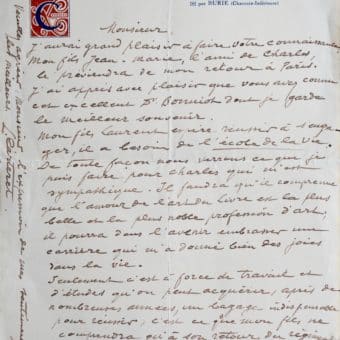 par BURIE (Charente-Inférieure)
Monsieur
J'aurai grand plaisir à faire votre connaissance
Mon fils Jean-Marie, l'ami de Charles
le préviendra de mon retour à Paris.
J'ai appris avec plaisir que vous avez connu
cet excellent Dr Bonniot dont je garde
le meilleur souvenir.
Mon fils Laurent espère réussir à s'enga-
ger, il a besoin de l'école de la vie.
De toute façon nous verrons ce que je
puis faire pour Charles qui m'est
sympathique. Il faudra qu'il comprenne
que l'amour de l'art du livre est la plus
belle et la plus noble profession d'art,
il pourra dans l'avenir embrasser une
carrière qui m'a donné bien des joies
dans la vie.
Seulement c'est à force de travail et
d'études qu'on peut acquérir, après de
nombreuses années, un bagage indispensable
pour réussir, c'est ce que mon fils ne
comprendra qu'à son retour du régiment
Veuillez agréer, Monsieur, l'expression de mes sentiments
les meilleurs